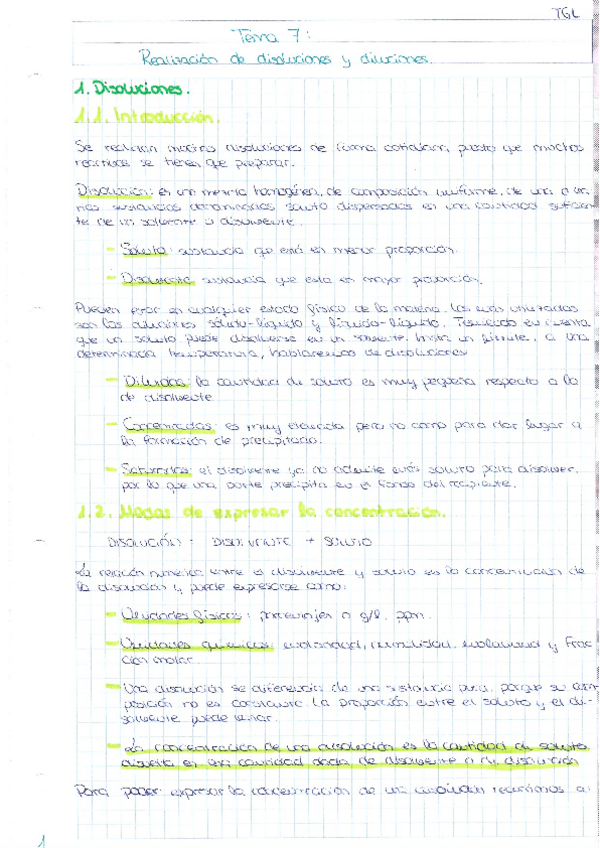 TGL
Tema 7:
Realización de disoluciones y diluciones.
1. Disoluciones.
1.1. Introducción.
Se realizan muchas disoluciones de forma cotidiana, puesto que muchos
reactivos se tienen que preparar.
Disolución: es una mezcla homogénea, de composición uniforme, de una o u
nas sustancias denominadas soluto dispersadas en una cantidad suficien
te de un solvente o disolvente.
- Soluto: sustancia que está en menor proporción.
- Disolvente: sustancia que esta en mayor proporción.
Pueden estar en cualquier estado físico de la materia. Las más utilizadas
son las soluto-líquido y líquido-líquido. Teniendo en cuenta
que un soluto puede disolverse en un solvente, hasta un límite, a una
determinada temperatura, hablaremos de disoluciones
- Diluidas: la cantidad de soluto es muy pequeña respecto a la
de disolvente
- Concentradas: es muy elevada pero no como para dar lugar a
la formación de precipitado.
- Saturadas: el disolvente ya no admite más soluto para disolver,
por lo que una parte precipita en el fondo del recipiente.
1.2. Modos de expresar la concentración.
DISOLUCIÓN = DISOLVENTE + SOLUTO
La relación numérica entre el disolvente y soluto es la concentración de
la disolución y puede expresarse como:
- Unidades físicas: porcentajes o g/l, ppm.
- Unidades químicas: molaridad, normalidad, molalidad y frac
ción molar.
- Una disolución se diferencia de una sustancia pura, porque su com
posición no es constante. La proporción entre el soluto y el di-
solvente puede variar.
- La concentración de una disolución es la cantidad de soluto
disuelta en una cantidad dada de disolvente o de disolución
Para poder expresar la concentración de una disolución recurrimos a:
1